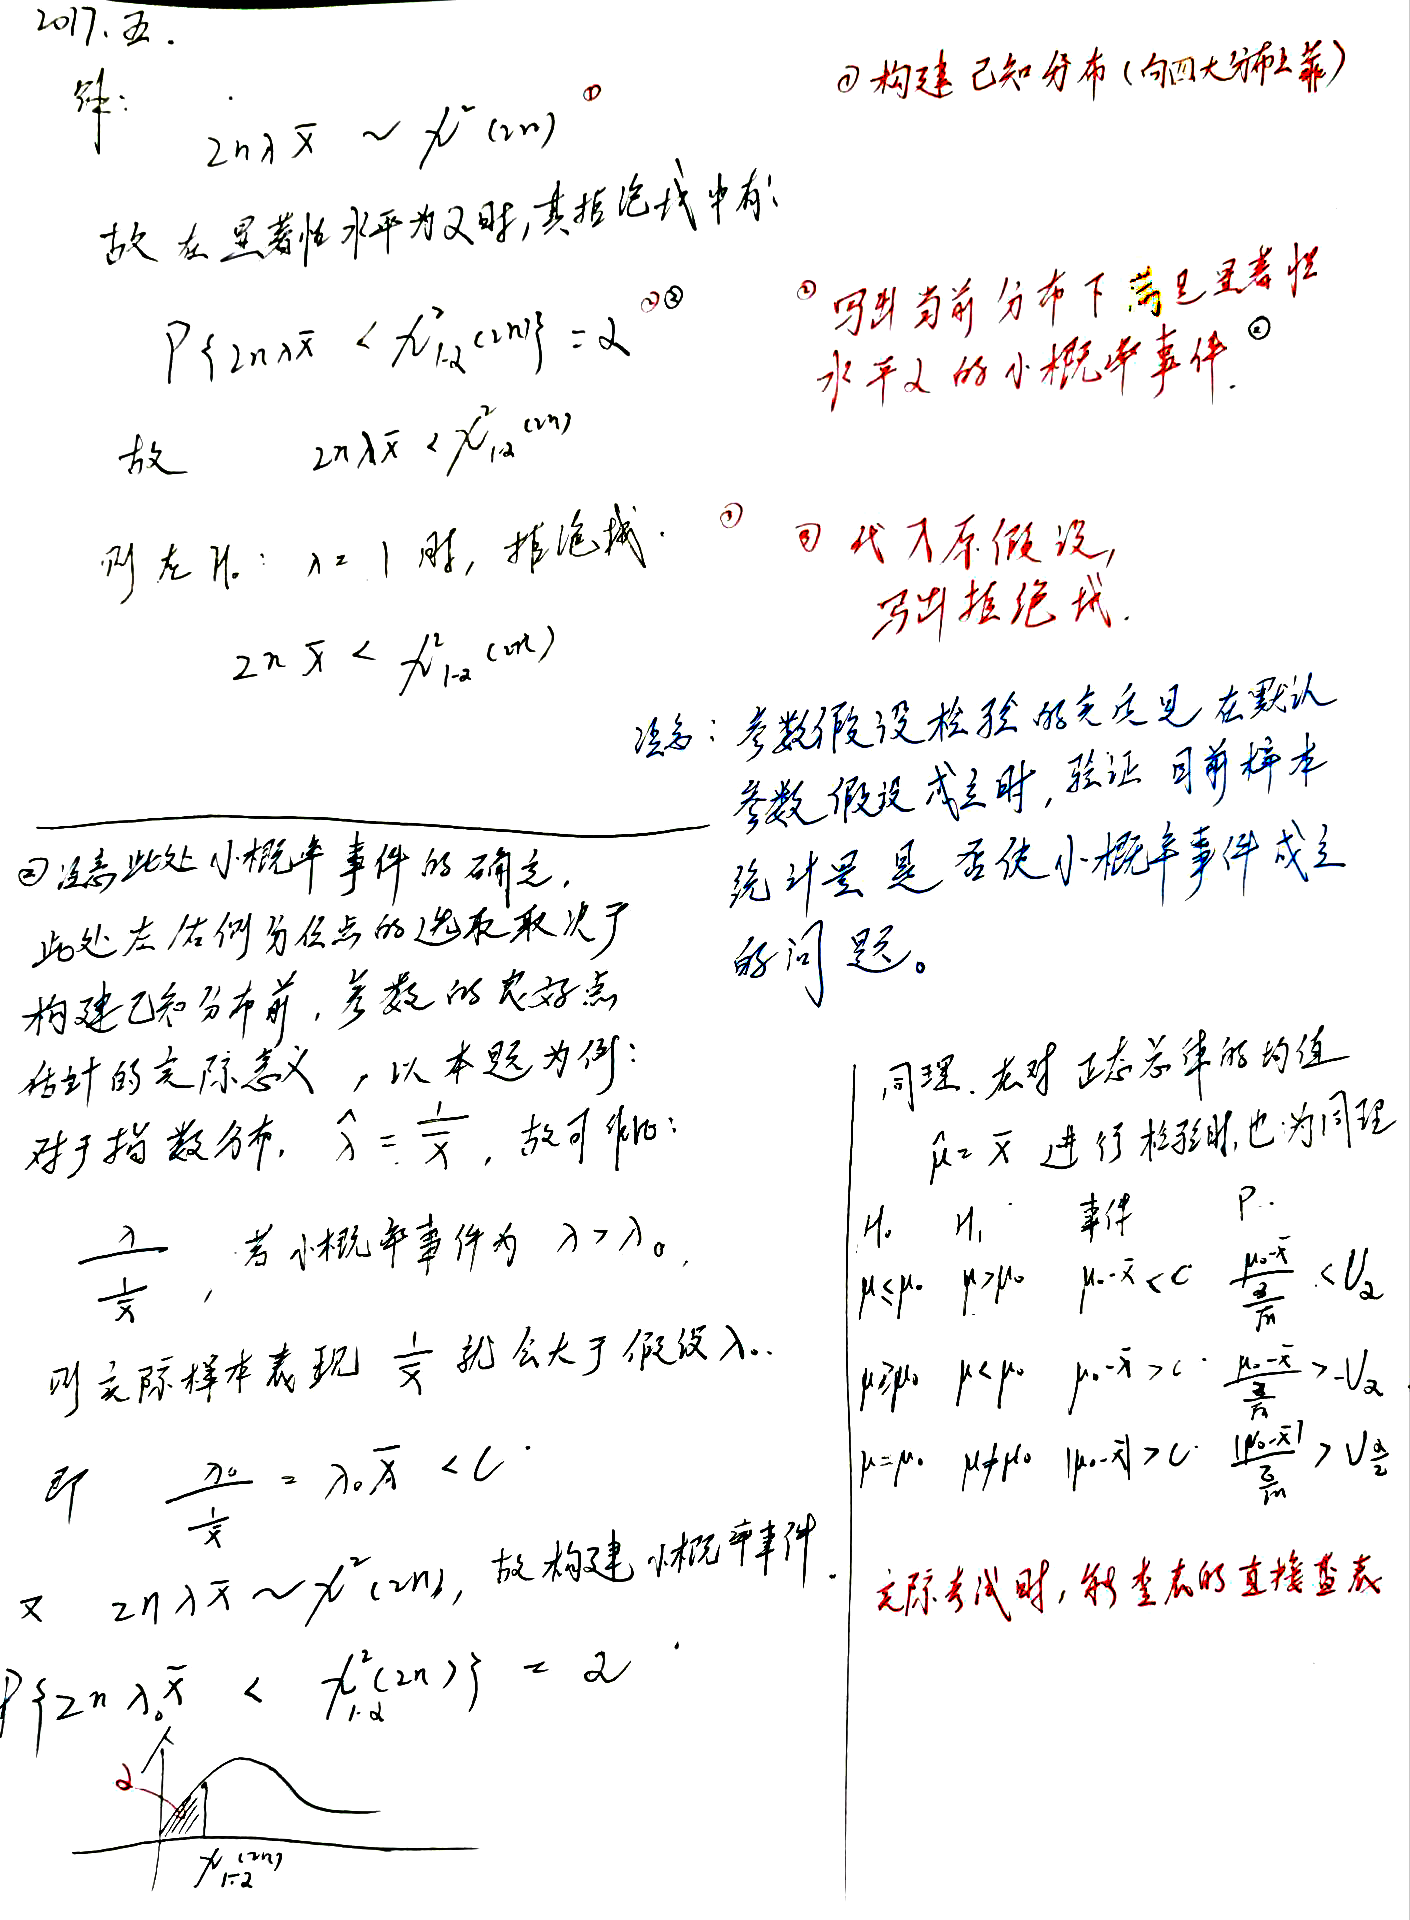 2017.五.
解:
2nλx̄ ~ χ²(2n) ①
① 构建已知分布(向四大分布上靠)
故在显著性水平为α时,其拒绝域中有:
P{2nλx̄ < χ²₁₋α(2n)} = α ②②
② 写出当前分布下满足显著性
水平α的小概率事件. ②
故 2nλx̄ < χ²₁₋α(2n)
则在H₀: λ=1时, 拒绝域. ③
2nx̄ < χ²₁₋α(2n)
③ 代入原假设,
写出拒绝域.
注意: 参数假设检验的实质是在默认
参数假设成立时, 验证目前样本
统计量是否使小概率事件成立
的问题。
②注意此处小概率事件的确定,
此处左右侧分位点的选取取决于
构建已知分布前, 参数的良好点
估计的实际意义, 以本题为例:
对于指数分布, λ̂ = 1/x̄, 故可作比:
λ/(1/x̄), 若小概率事件为 λ>λ₀,
则实际样本表现 1/x̄ 就会大于假设λ₀.
即 λ₀/(1/x̄) = λ₀x̄ < C
又 2nλx̄ ~ χ²(2n), 故构建小概率事件.
P{2nλ₀x̄ < χ²₁₋α(2n)} = α
α
χ²₁₋α(2n)
同理, 在对正态总体的均值
μ̂=x̄ 进行检验时, 也为同理
H₀ H₁ 事件 P..
μ≤μ₀ μ>μ₀ μ₀-x̄<C (μ₀-x̄)/(σ/√n) < Uα
μ≥μ₀ μ<μ₀ μ₀-x̄>C (μ₀-x̄)/(σ/√n) > -Uα
μ=μ₀ μ≠μ₀ |μ₀-x̄|>C |μ₀-x̄|/(σ/√n) > U α/2
实际考试时, 能查表的直接查表